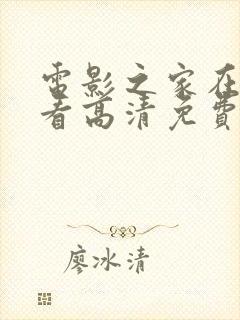 電影之家在
看高清免費
廖冰清